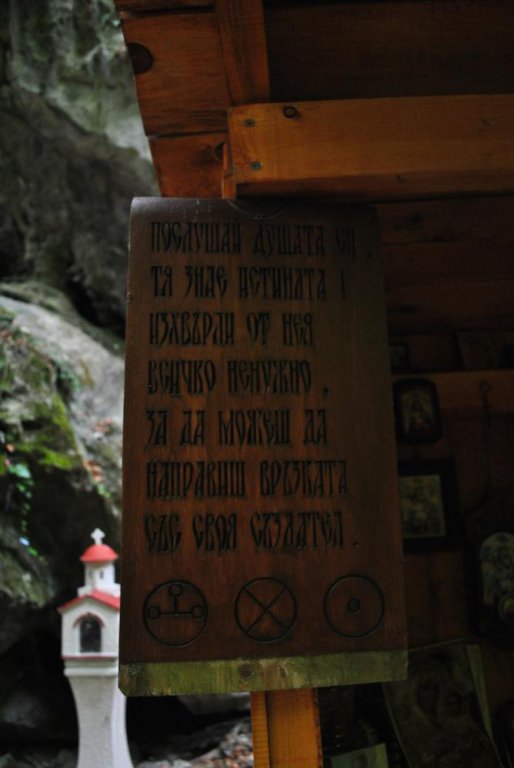 ПОСЛУШАЙ ДУШАТА СИ.
ТЯ ЗНАЕ ИСТИНАТА!
ИЗХВЪРЛИ ОТ НЕЯ
ВСИЧКО НЕНУЖНО.
ЗА ДА МОЖЕШ ДА
НАПРАВИШ ВРЪЗКАТА
СЪС СВОЯ СЪЗДАТЕЛ.